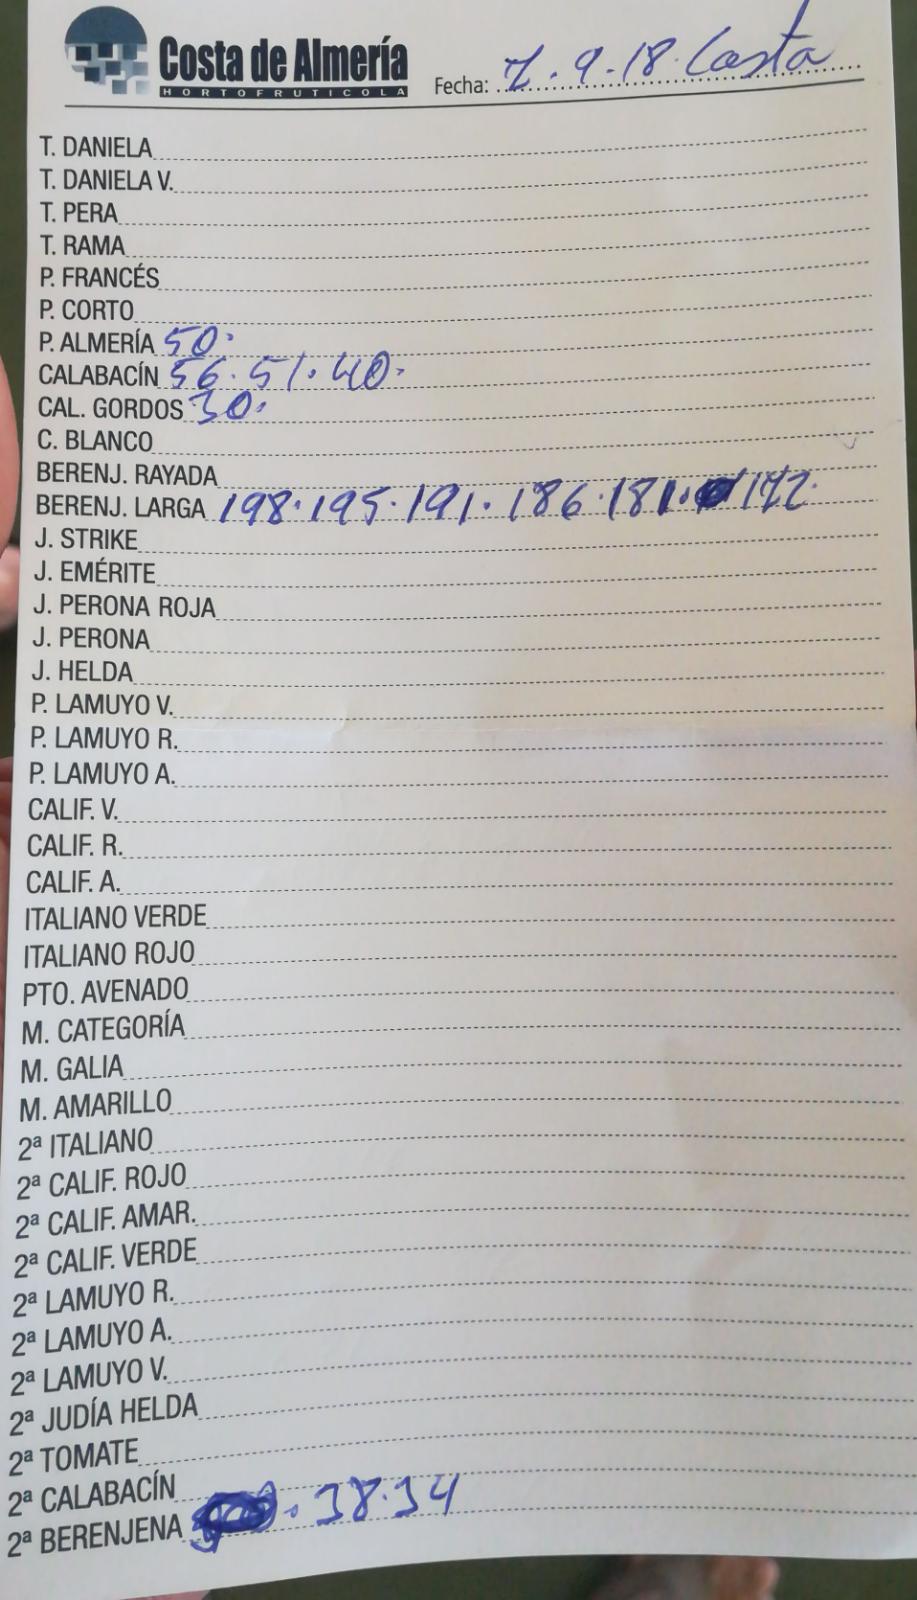 Costa de Almería
HORTOFRUTICOLA
Fecha: 7.9.18 Costa
T. DANIELA
T. DANIELA V.
T. PERA
T. RAMA
P. FRANCÉS
P. CORTO
P. ALMERÍA 50.
CALABACÍN 56.51.40.
CAL. GORDOS 30.
C. BLANCO
BERENJ. RAYADA
BERENJ. LARGA 198.195.191.186.181.172.
J. STRIKE
J. EMÉRITE
J. PERONA ROJA
J. PERONA
J. HELDA
P. LAMUYO V.
P. LAMUYO R.
P. LAMUYO A.
CALIF. V.
CALIF. R.
CALIF. A.
ITALIANO VERDE
ITALIANO ROJO
PTO. AVENADO
M. CATEGORÍA
M. GALIA
M. AMARILLO
2ª ITALIANO
2ª CALIF. ROJO
2ª CALIF. AMAR.
2ª CALIF. VERDE
2ª LAMUYO R.
2ª LAMUYO A.
2ª LAMUYO V.
2ª JUDÍA HELDA
2ª TOMATE
2ª CALABACÍN
2ª BERENJENA . 38.34